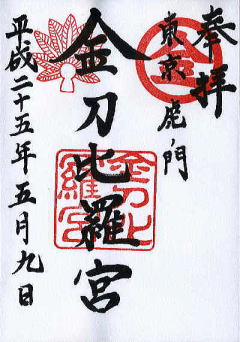 奉拝
東京虎ノ門
金刀比羅宮
平成二十五年五月九日
金刀比羅宮